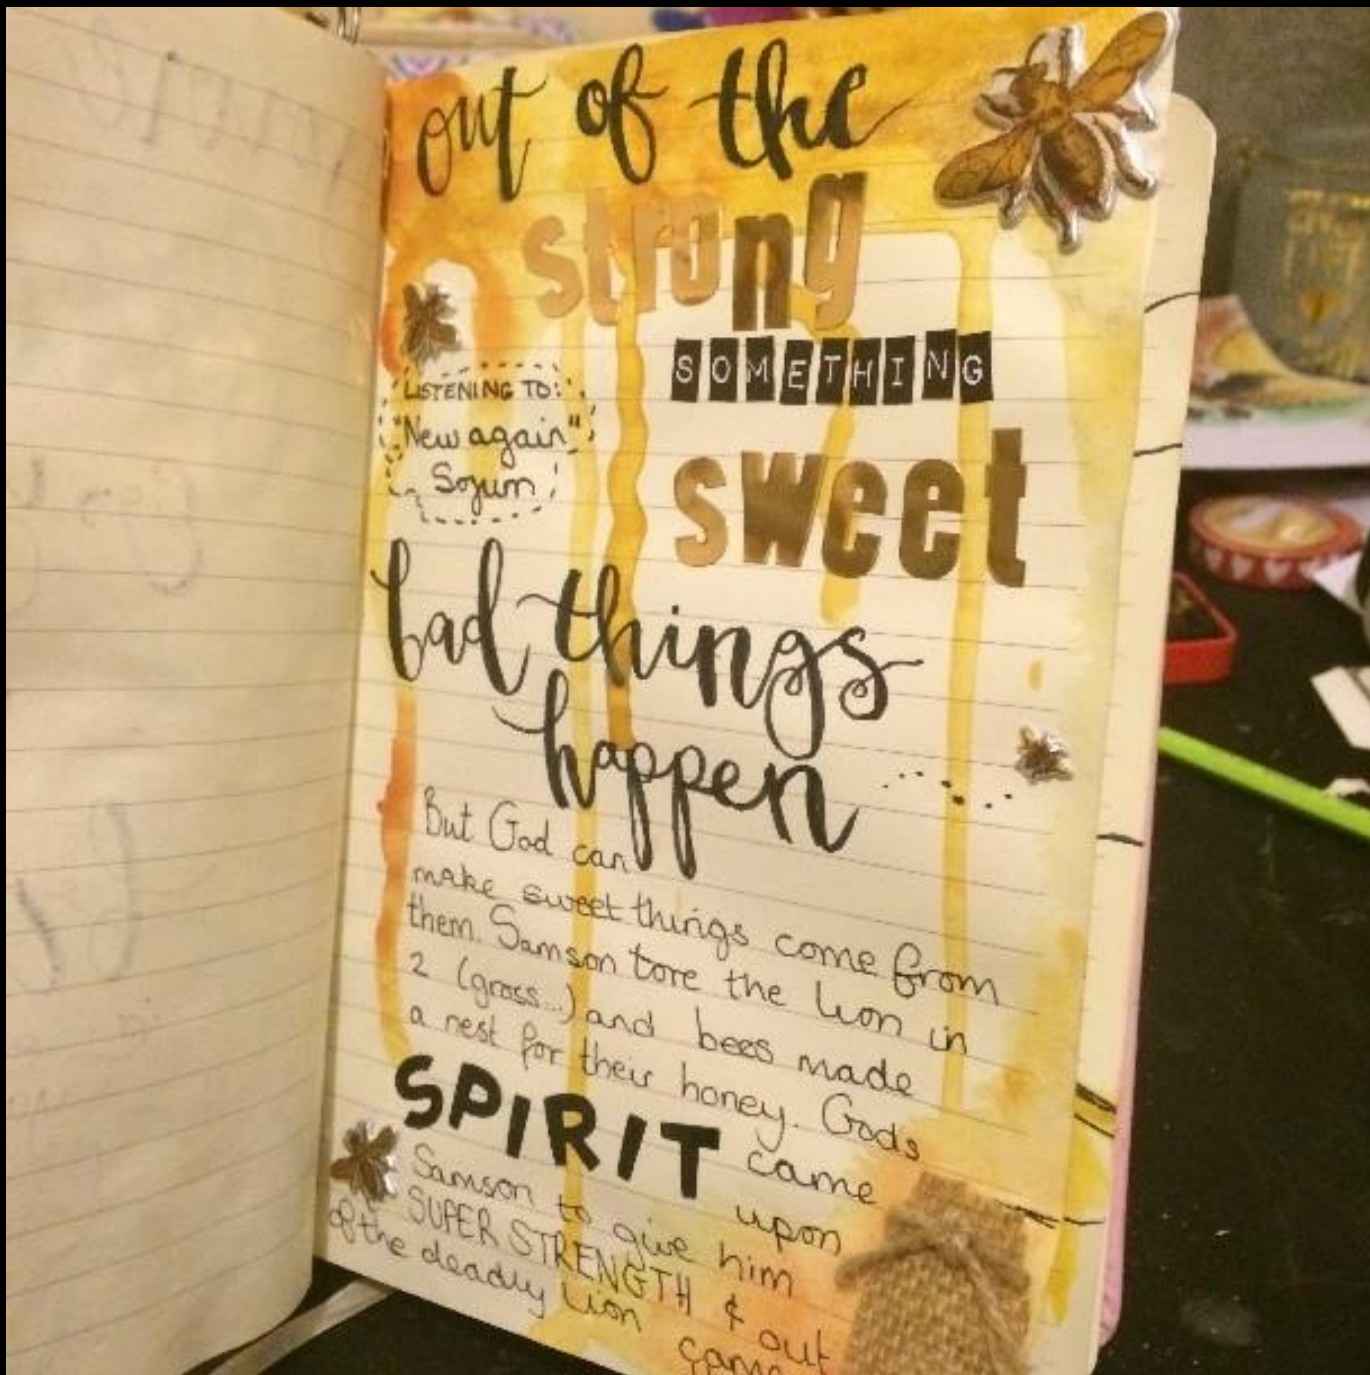 out of the
strong
SOMETHING
sweet
LISTENING TO:
"New again"
Sojurn
bad things
happen
But God can
make sweet things come from
them. Samson tore the lion in
2 (gross...) and bees made
a nest for their honey. Gods
SPIRIT came
upon
Samson to give him
SUPER STRENGTH & out
of the deadly lion
came